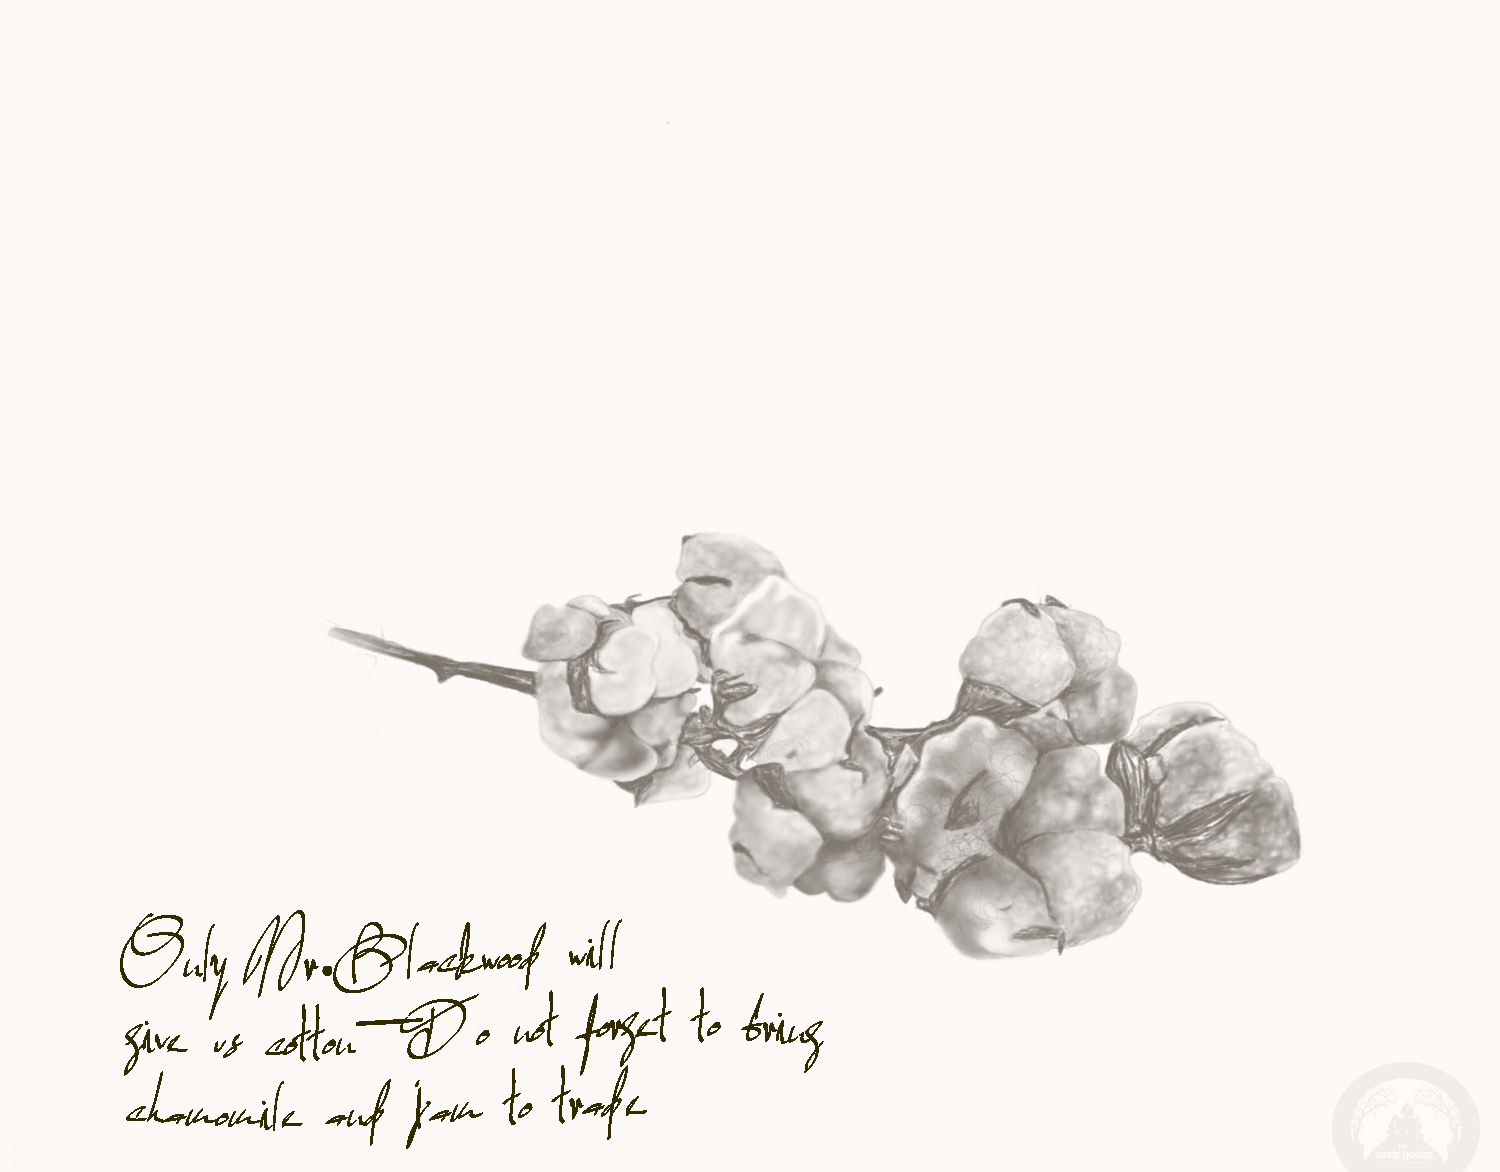 Only Mr. Blackwood will
give us cotton—Do not forget to bring
chamomile and jam to trade